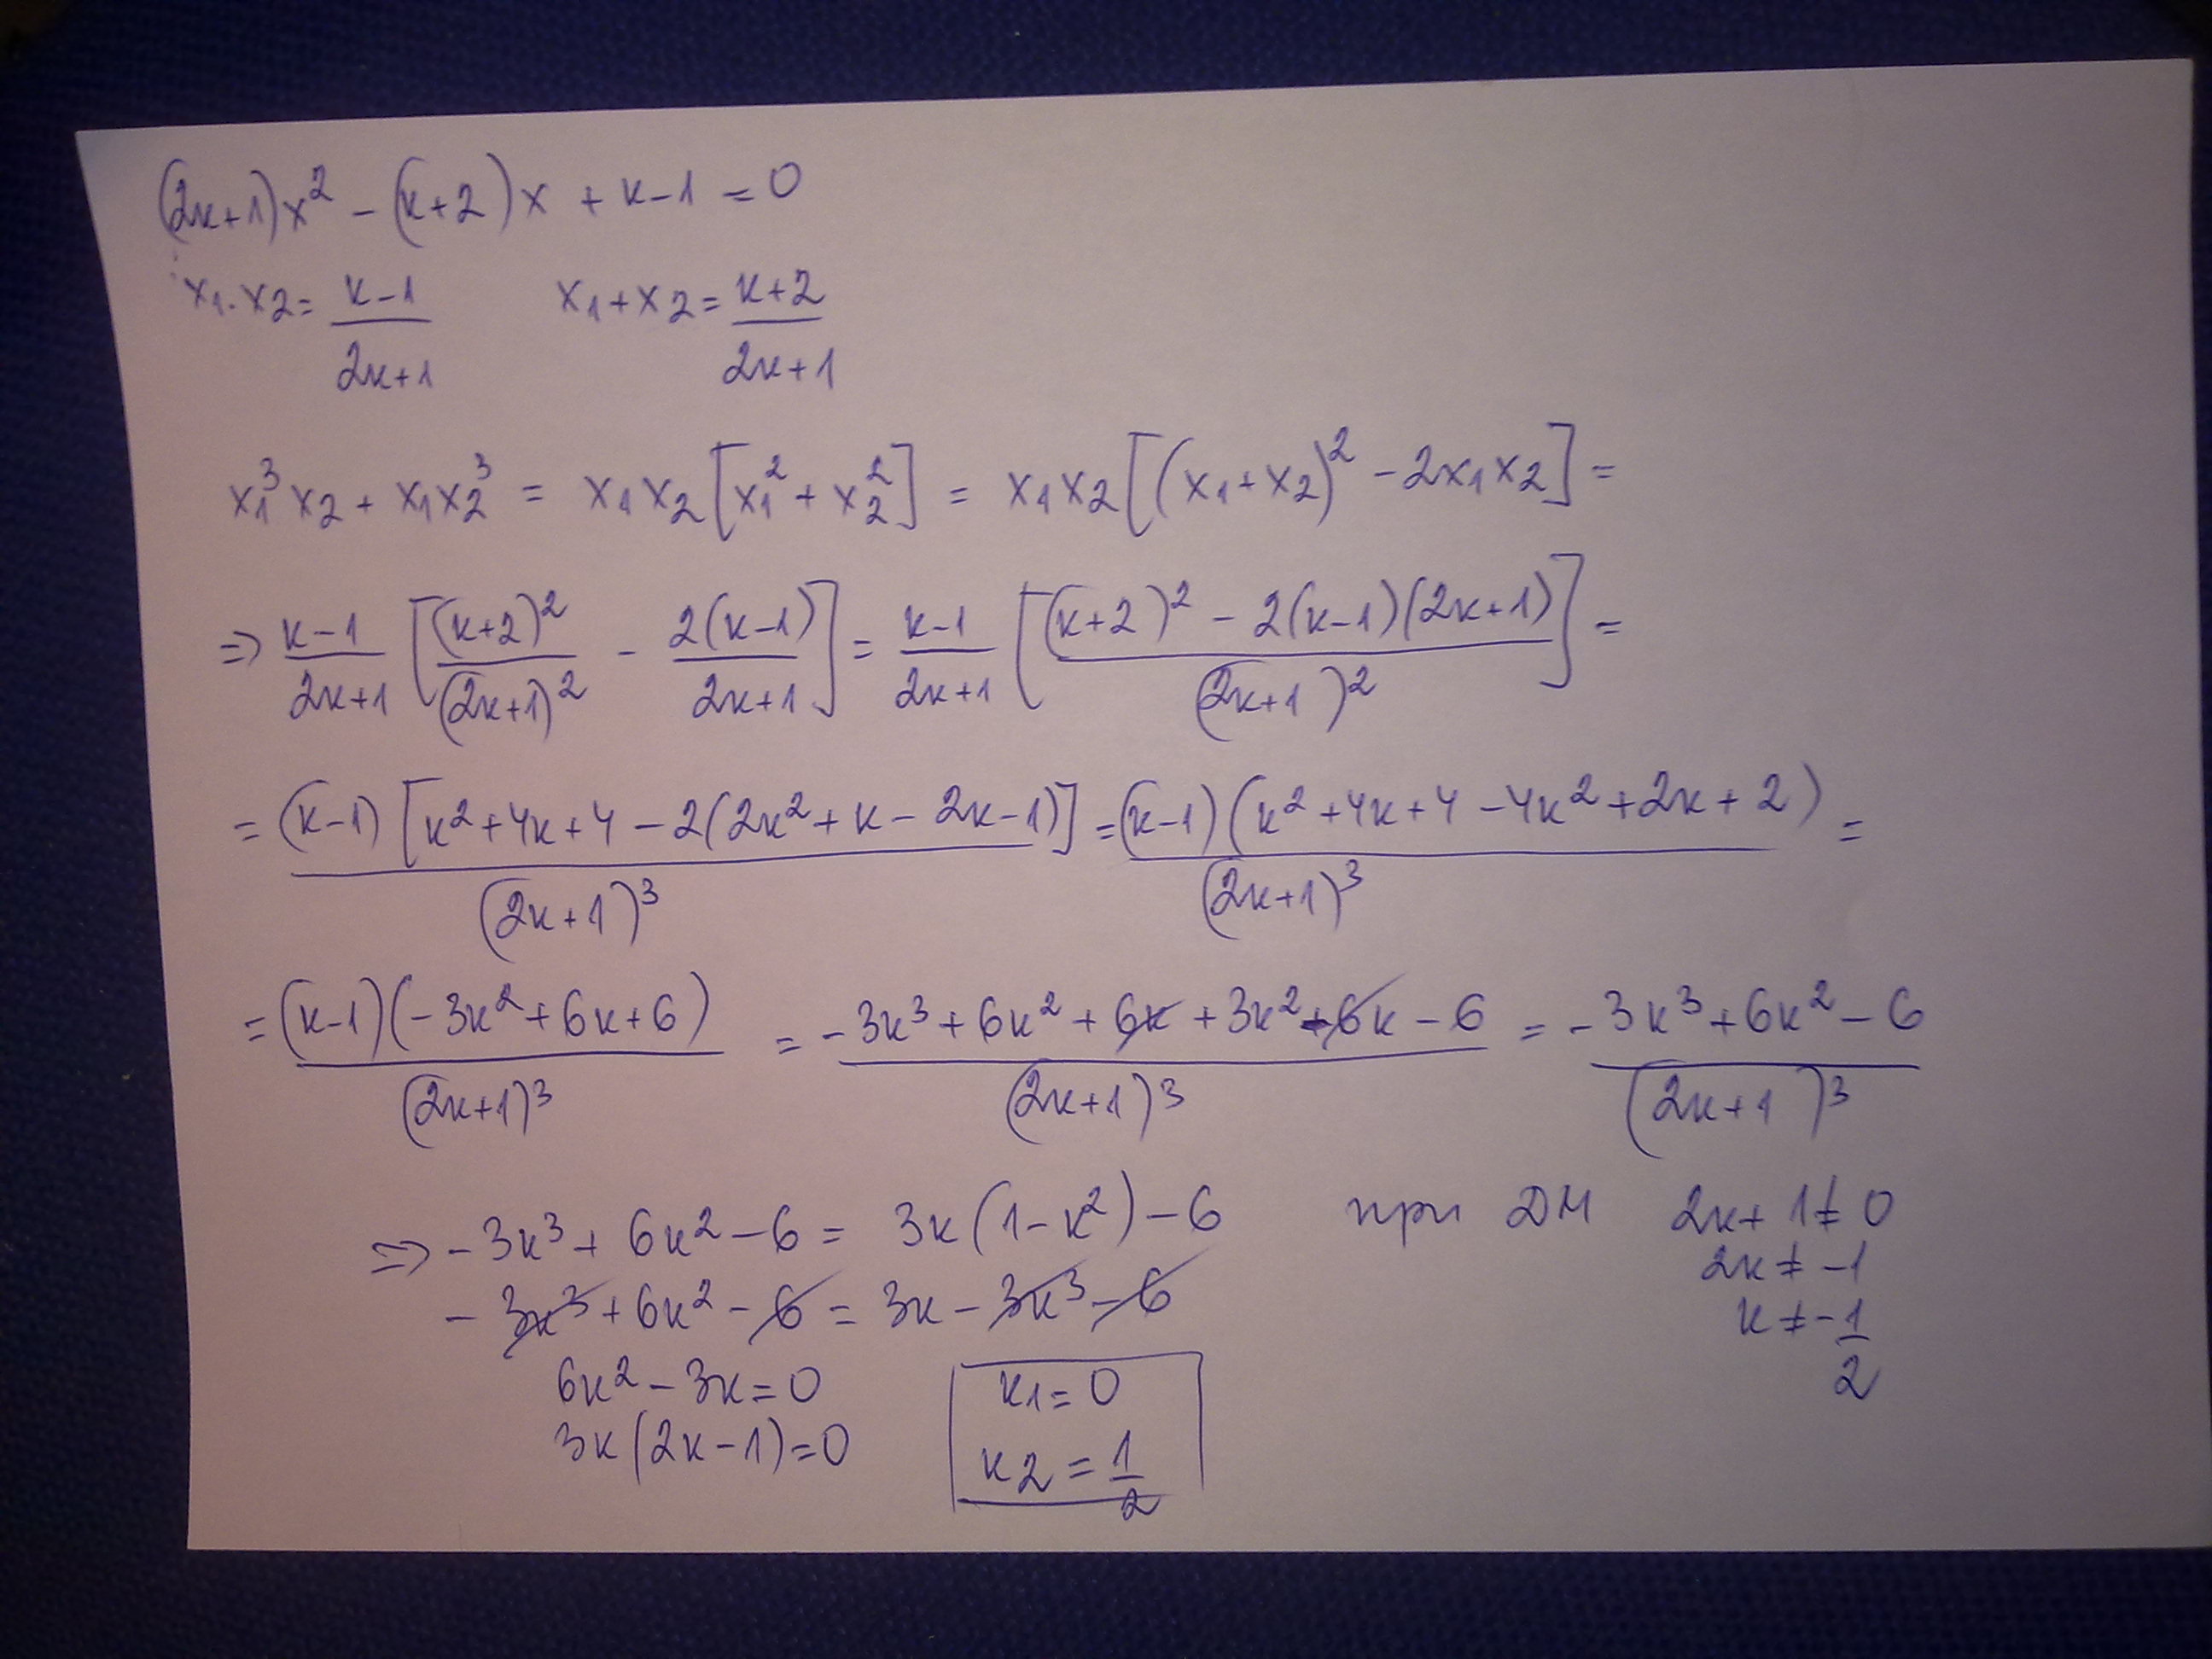 (2k+1)x² - (k+2)x + k-1 = 0
x₁.x₂ = (k-1)/(2k+1) x₁+x₂ = (k+2)/(2k+1)
x₁³x₂ + x₁x₂³ = x₁x₂[x₁²+x₂²] = x₁x₂[(x₁+x₂)² - 2x₁x₂] =
⇒ (k-1)/(2k+1) [(k+2)²/(2k+1)² - 2(k-1)/(2k+1)] = (k-1)/(2k+1) [((k+2)² - 2(k-1)(2k+1))/(2k+1)²] =
= (k-1)[k²+4k+4-2(2k²+k-2k-1)]/(2k+1)³ = (k-1)(k²+4k+4-4k²+2k+2)/(2k+1)³ =
= (k-1)(-3k²+6k+6)/(2k+1)³ = (-3k³+6k²+6k+3k²-6k-6)/(2k+1)³ = (-3k³+6k²-6)/(2k+1)³
⇒ -3k³+6k²-6 = 3k(1-k²)-6 при ДМ 2k+1≠0
2k≠-1
-3k³+6k²-6 = 3k-3k³-6 k≠-1/2
6k²-3k=0 k₁=0
3k(2k-1)=0 k₂=1/2